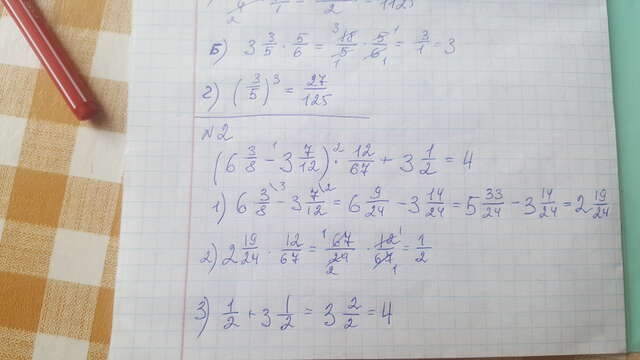 = 112
Б) 3 3/5 · 5/6 = 18/5 · 5/6 = 3/1 = 3
г) (3/5)³ = 27/125
№2
(6 3/8 - 3 7/12) · 12/67 + 3 1/2 = 4
1) 6 3/8 - 3 7/12 = 6 9/24 - 3 14/24 = 5 33/24 - 3 14/24 = 2 19/24
2) 2 19/24 · 12/67 = 67/24 · 12/67 = 1/2
3) 1/2 + 3 1/2 = 3 2/2 = 4